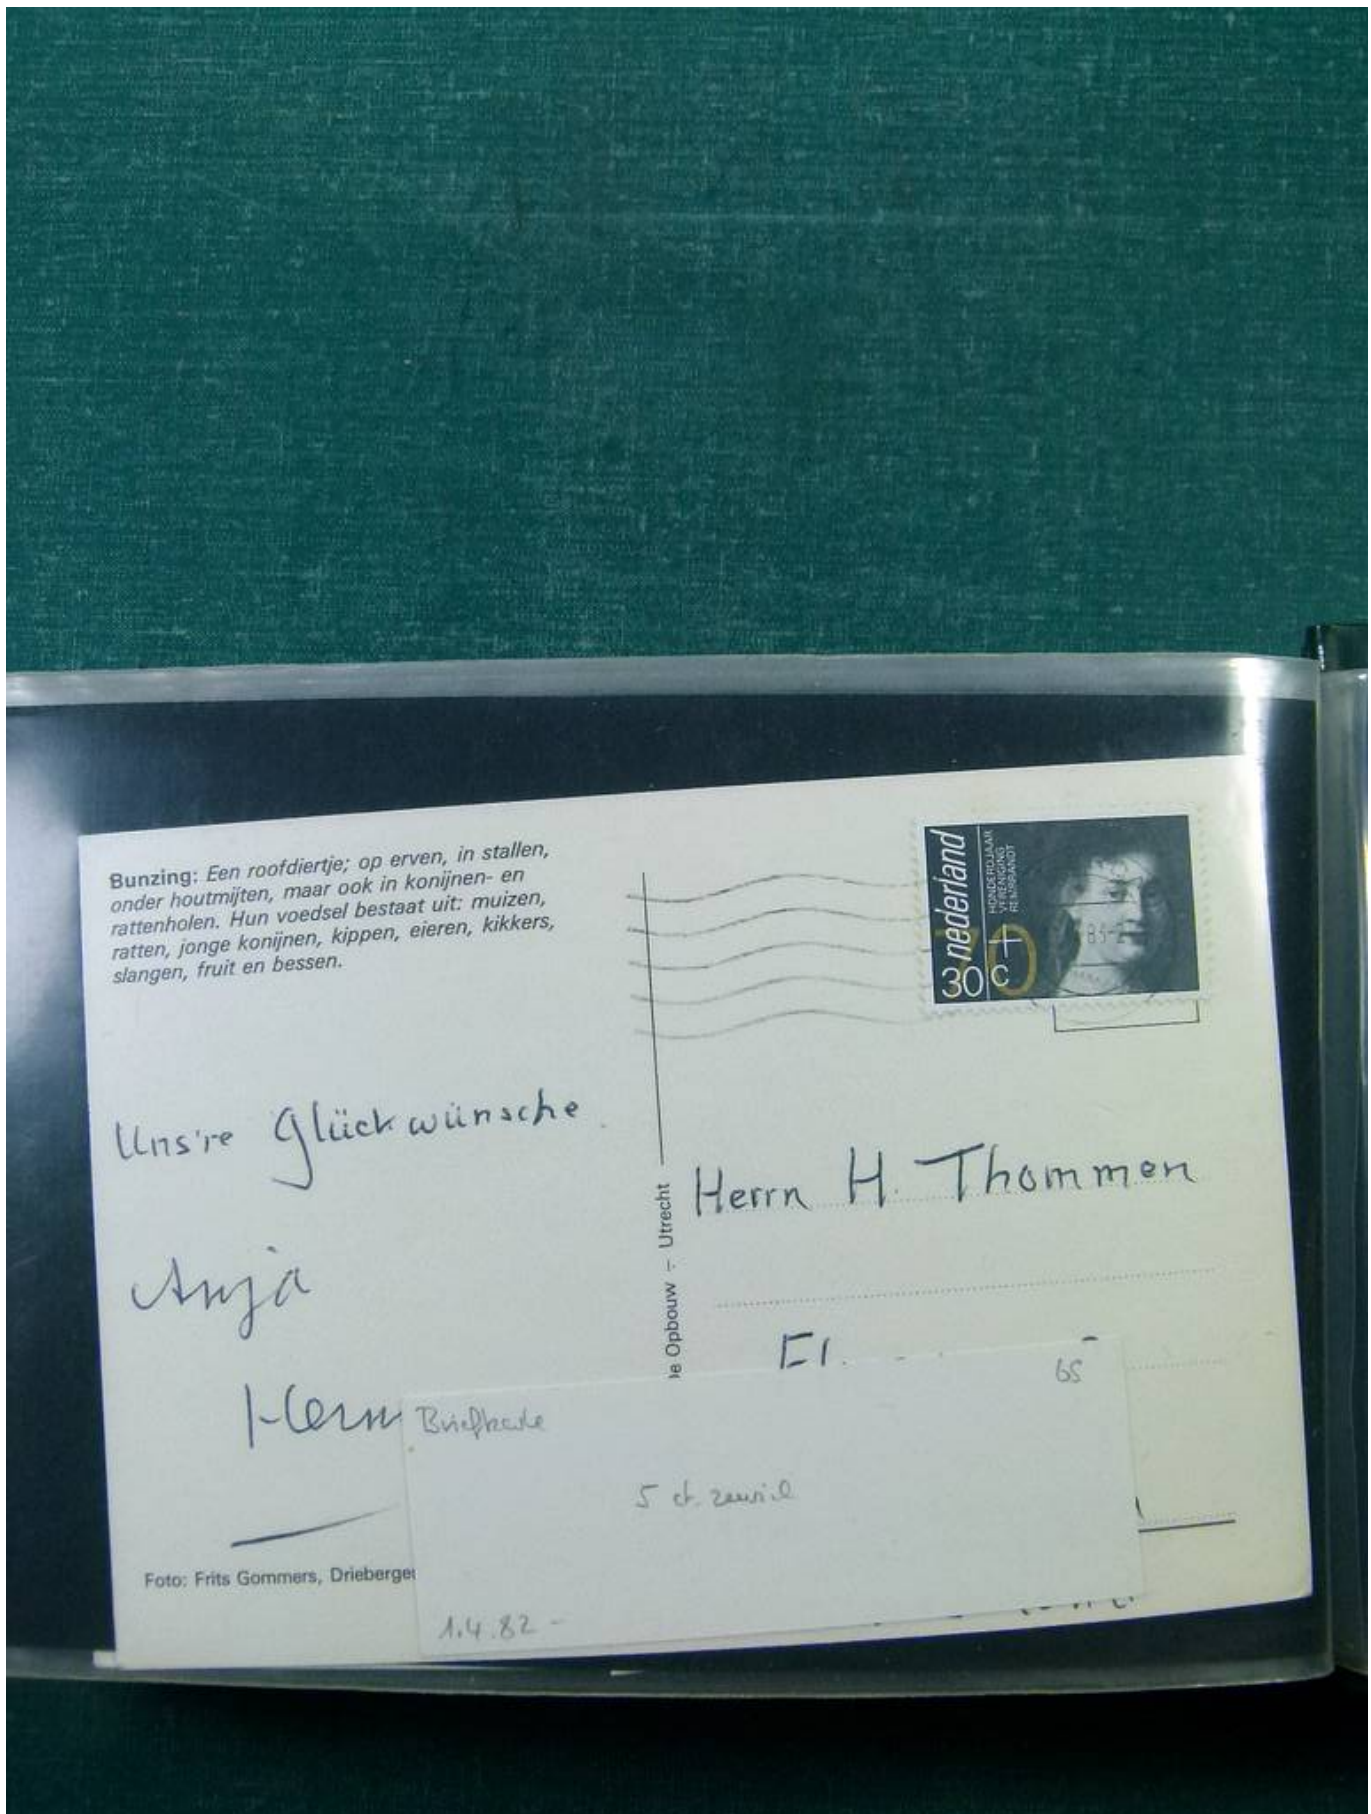 Bunzing: Een roofdiertje; op erven, in stallen,
onder houtmijten, maar ook in konijnen- en
rattenholen. Hun voedsel bestaat uit: muizen,
ratten, jonge konijnen, kippen, eieren, kikkers,
slangen, fruit en bessen.
nederland
HONDERDJAAR
VERENIGING
REMBRANDT
30 c
+
Uns're Glückwünsche
Anja
Herrn H. Thommen
Opbouw – Utrecht
65
Briefkarte
5 ct. zuviel
1.4.82 –
Foto: Frits Gommers,